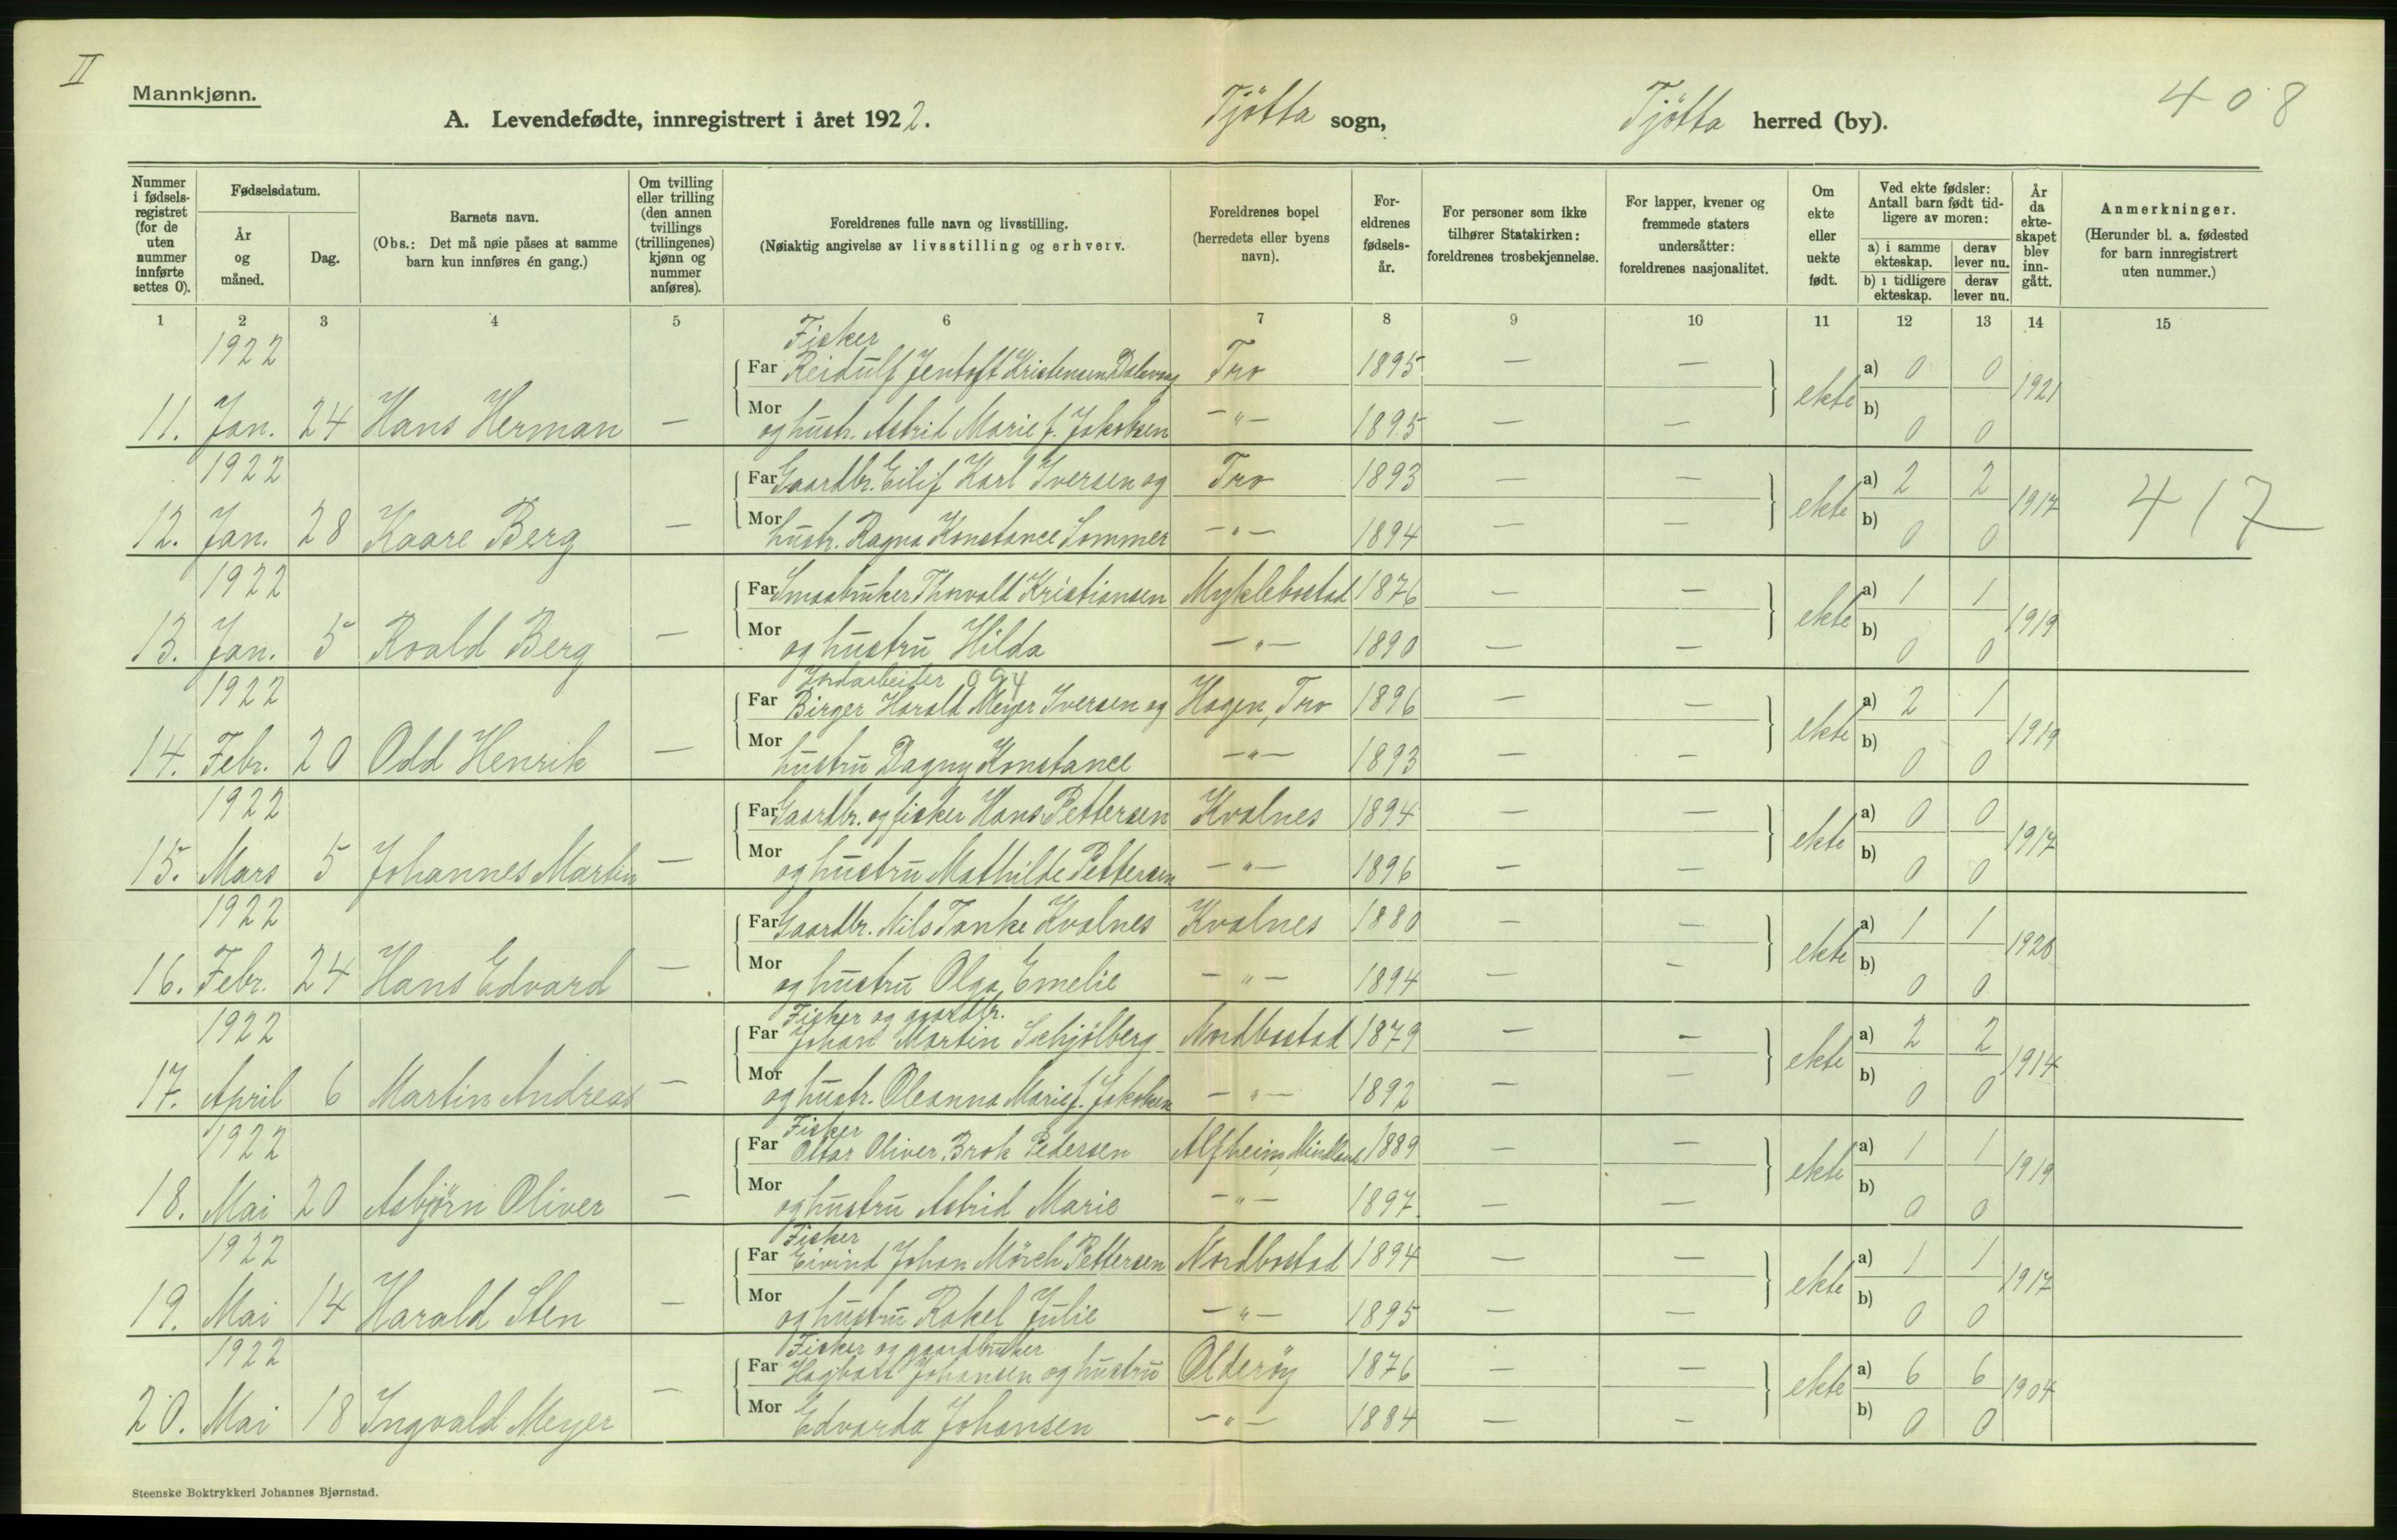 II
Mannkjønn.
A. Levendefødte, innregistrert i året 1922.
Tjötta sogn,
Tjötta herred (by).
408
Nummer i fødselsregistret (for de uten nummer innførte settes 0).
Fødselsdatum.
År og måned.
Dag.
Barnets navn.
(Obs.: Det må nøie påses at samme barn kun innføres én gang.)
Om tvilling eller trilling (den annen tvillings (trillingenes) kjønn og nummer anføres).
Foreldrenes fulle navn og livsstilling.
(Nøiaktig angivelse av livsstilling og erhverv.
Foreldrenes bopel (herredets eller byens navn).
Foreldrenes fødselsår.
For personer som ikke tilhører Statskirken: foreldrenes trosbekjennelse.
For lapper, kvener og fremmede staters undersåtter: foreldrenes nasjonalitet.
Om ekte eller uekte født.
Ved ekte fødsler: Antall barn født tidligere av moren:
a) i samme ekteskap.
derav lever nu.
b) i tidligere ekteskap.
derav lever nu.
År da ekteskapet blev inngått.
Anmerkninger.
(Herunder bl. a. fødested for barn innregistrert uten nummer.)
1 2 3 4 5 6 7 8 9 10 11 12 13 14 15
1922 Fisker
Far Reidulf Jentoft Kristensen Dalevaag Tro 1895 — — a) 0 0
11. Jan. 24 Hans Herman — ekte 1921
Mor og hustr. Astrid Marie f. Jakobsen —"— 1895 — — b) 0 0
1922 Far Gaardbr. Eilif Karl Iversen og Tro 1893 — — a) 2 2
12. Jan. 28 Kaare Berg — ekte 1917 417
Mor hustr. Ragna Konstance Sommer —"— 1894 — — b) 0 0
1922 Far Smaabruker Thorvald Kristiansen Myklebostad 1876 — — a) 1 1
13. Jan. 5 Roald Berg — ekte 1919
Mor og hustru Hilda —"— 1890 — — b) 0 0
1922 Jordarbeider 094
Far Birger Harald Meyer Iversen og Hagen, Tro 1896 — — a) 2 1
14. Febr. 20 Odd Henrik — ekte 1919
Mor hustru Dagny Konstance —"— 1893 — — b) 0 0
1922 Far Gaardbr. og fisker Hans Pettersen Kvalnes 1894 — — a) 0 0
15. Mars 5 Johannes Martin — ekte 1917
Mor og hustru Mathilde Pettersen —"— 1896 — — b) 0 0
1922 Far Gaardbr. Nils Tanke Kvalnes Kvalnes 1880 — — a) 1 1
16. Febr. 24 Hans Edvard — ekte 1920
Mor og hustru Olga Emelie —"— 1894 — — b) 0 0
1922 Fisker og gaardbr.
Far Johan Martin Schjölberg Nordbostad 1879 — — a) 2 2
17. April 6 Martin Andreas — ekte 1914
Mor og hustr. Oleanna Marie f. Jakobsen —"— 1892 — — b) 0 0
1922 Fisker
Far Ottar Oliver Brok Pedersen Alfheim, Mindland 1889 — — a) 1 1
18. Mai 20 Asbjörn Oliver — ekte 1919
Mor og hustru Astrid Marie —"— 1897 — — b) 0 0
1922 Fisker
Far Eivind Johan Mörch Pettersen Nordbostad 1894 — — a) 1 1
19. Mai 14 Harald Sten — ekte 1917
Mor og hustru Rakel Julie —"— 1895 — — b) 0 0
1922 Fisker og gaardbruker
Far Hagbart Johansen og hustru Olderöy 1876 — — a) 6 6
20. Mai 18 Ingvald Meyer — ekte 1904
Mor Edvarda Johansen —"— 1884 — — b) 0 0
Steenske Boktrykkeri Johannes Bjørnstad.